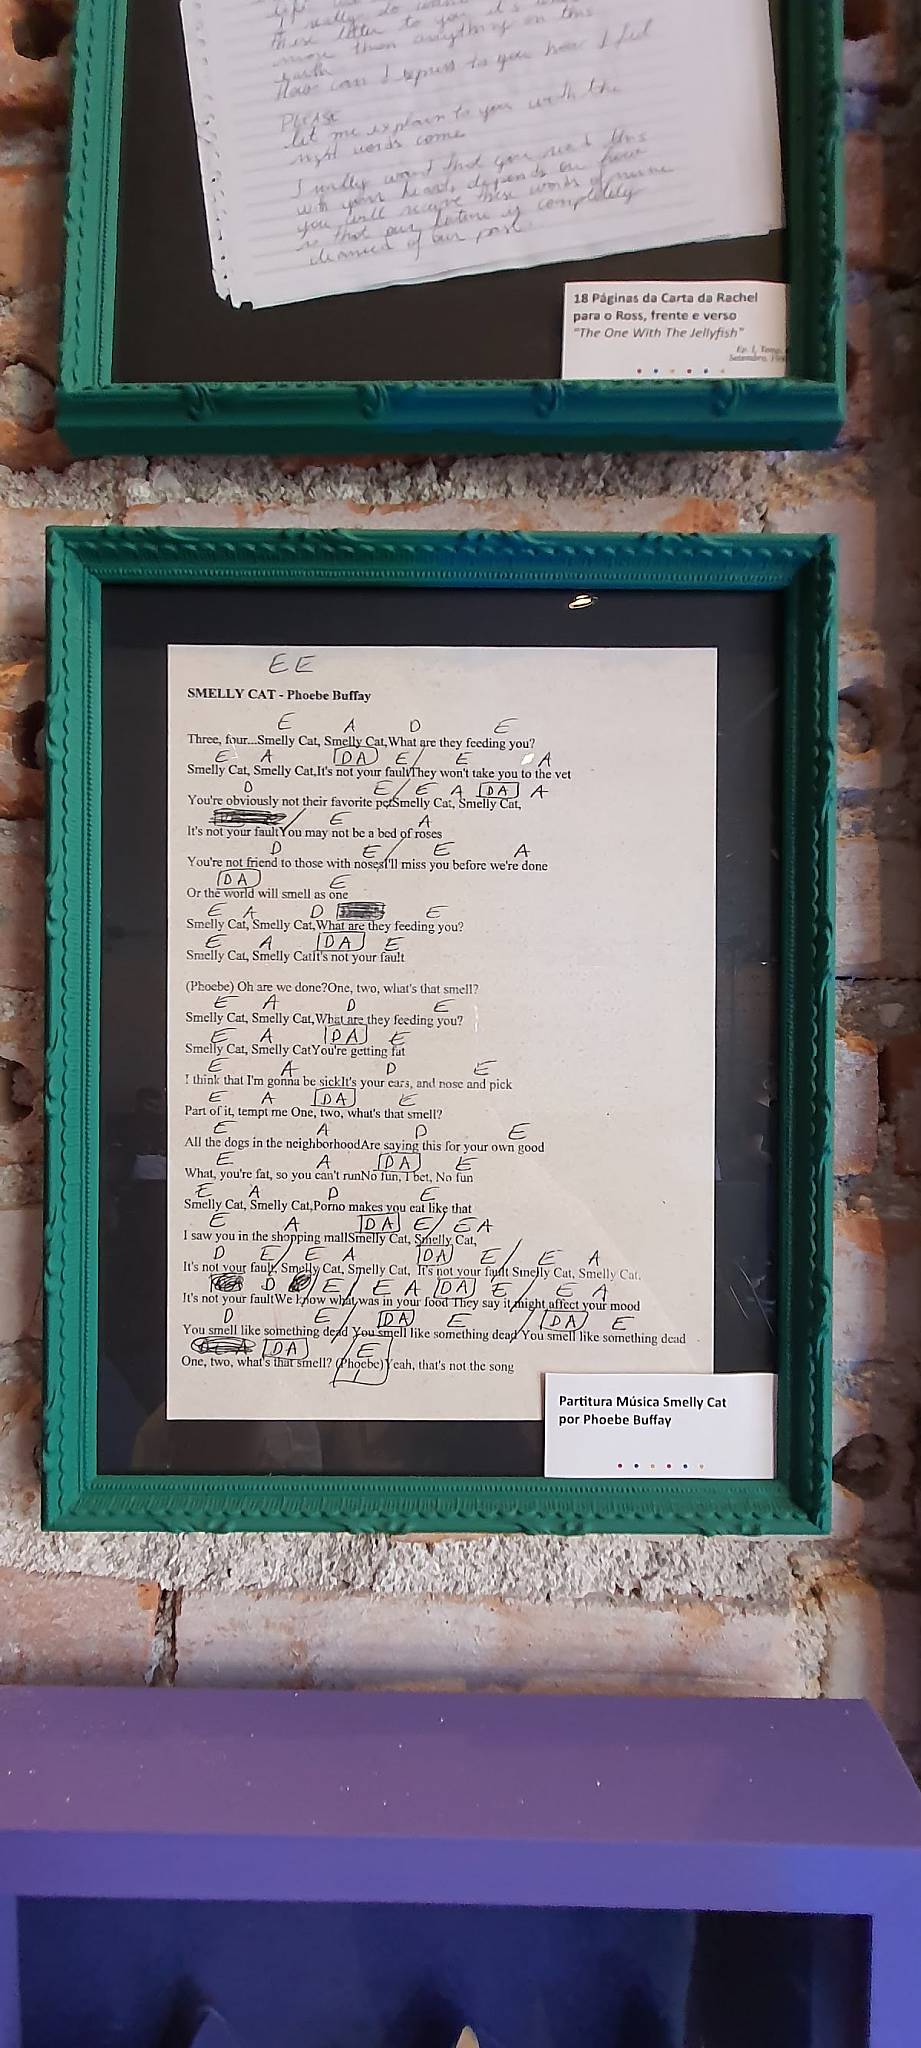 these letter to you it's
more than anything on this
earth
How can I express to you how I feel
PLEASE
let me explain to you with the
right words come
I really want that you read this
with your heart, depends on how
you will receive these words of mine
is that our future is completely
of our past.
18 Páginas da Carta da Rachel
para o Ross, frente e verso
"The One With The Jellyfish"
E E
SMELLY CAT - Phoebe Buffay
E A D E
Three, four...Smelly Cat, Smelly Cat,What are they feeding you?
E A DA E/ E A
Smelly Cat, Smelly Cat,It's not your faultThey won't take you to the vet
D E/ E A DA A
You're obviously not their favorite petSmelly Cat, Smelly Cat,
/ E A
It's not your faultYou may not be a bed of roses
D E/ E A
You're not friend to those with nosesI'll miss you before we're done
DA E
Or the world will smell as one
E A D E
Smelly Cat, Smelly Cat,What are they feeding you?
E A DA E
Smelly Cat, Smelly CatIt's not your fault
(Phoebe) Oh are we done?One, two, what's that smell?
E A D E
Smelly Cat, Smelly Cat,What are they feeding you?
E A DA E
Smelly Cat, Smelly CatYou're getting fat
E A D E
I think that I'm gonna be sickIt's your ears, and nose and pick
E A DA E
Part of it, tempt me One, two, what's that smell?
E A D E
All the dogs in the neighborhoodAre saying this for your own good
E A DA E
What, you're fat, so you can't runNo fun, I bet, No fun
E A D E
Smelly Cat, Smelly Cat,Porno makes you eat like that
E A DA E/ E A
I saw you in the shopping mallSmelly Cat, Smelly Cat,
D E/ E A DA E/ E A
It's not your fault, Smelly Cat, Smelly Cat, It's not your fault Smelly Cat, Smelly Cat,
D E/ E A DA E/ E A
It's not your faultWe know what was in your food They say it might affect your mood
D E/ DA E / DA E
You smell like something dead You smell like something dead You smell like something dead
DA E
One, two, what's that smell? (Phoebe)Yeah, that's not the song
Partitura Música Smelly Cat
por Phoebe Buffay